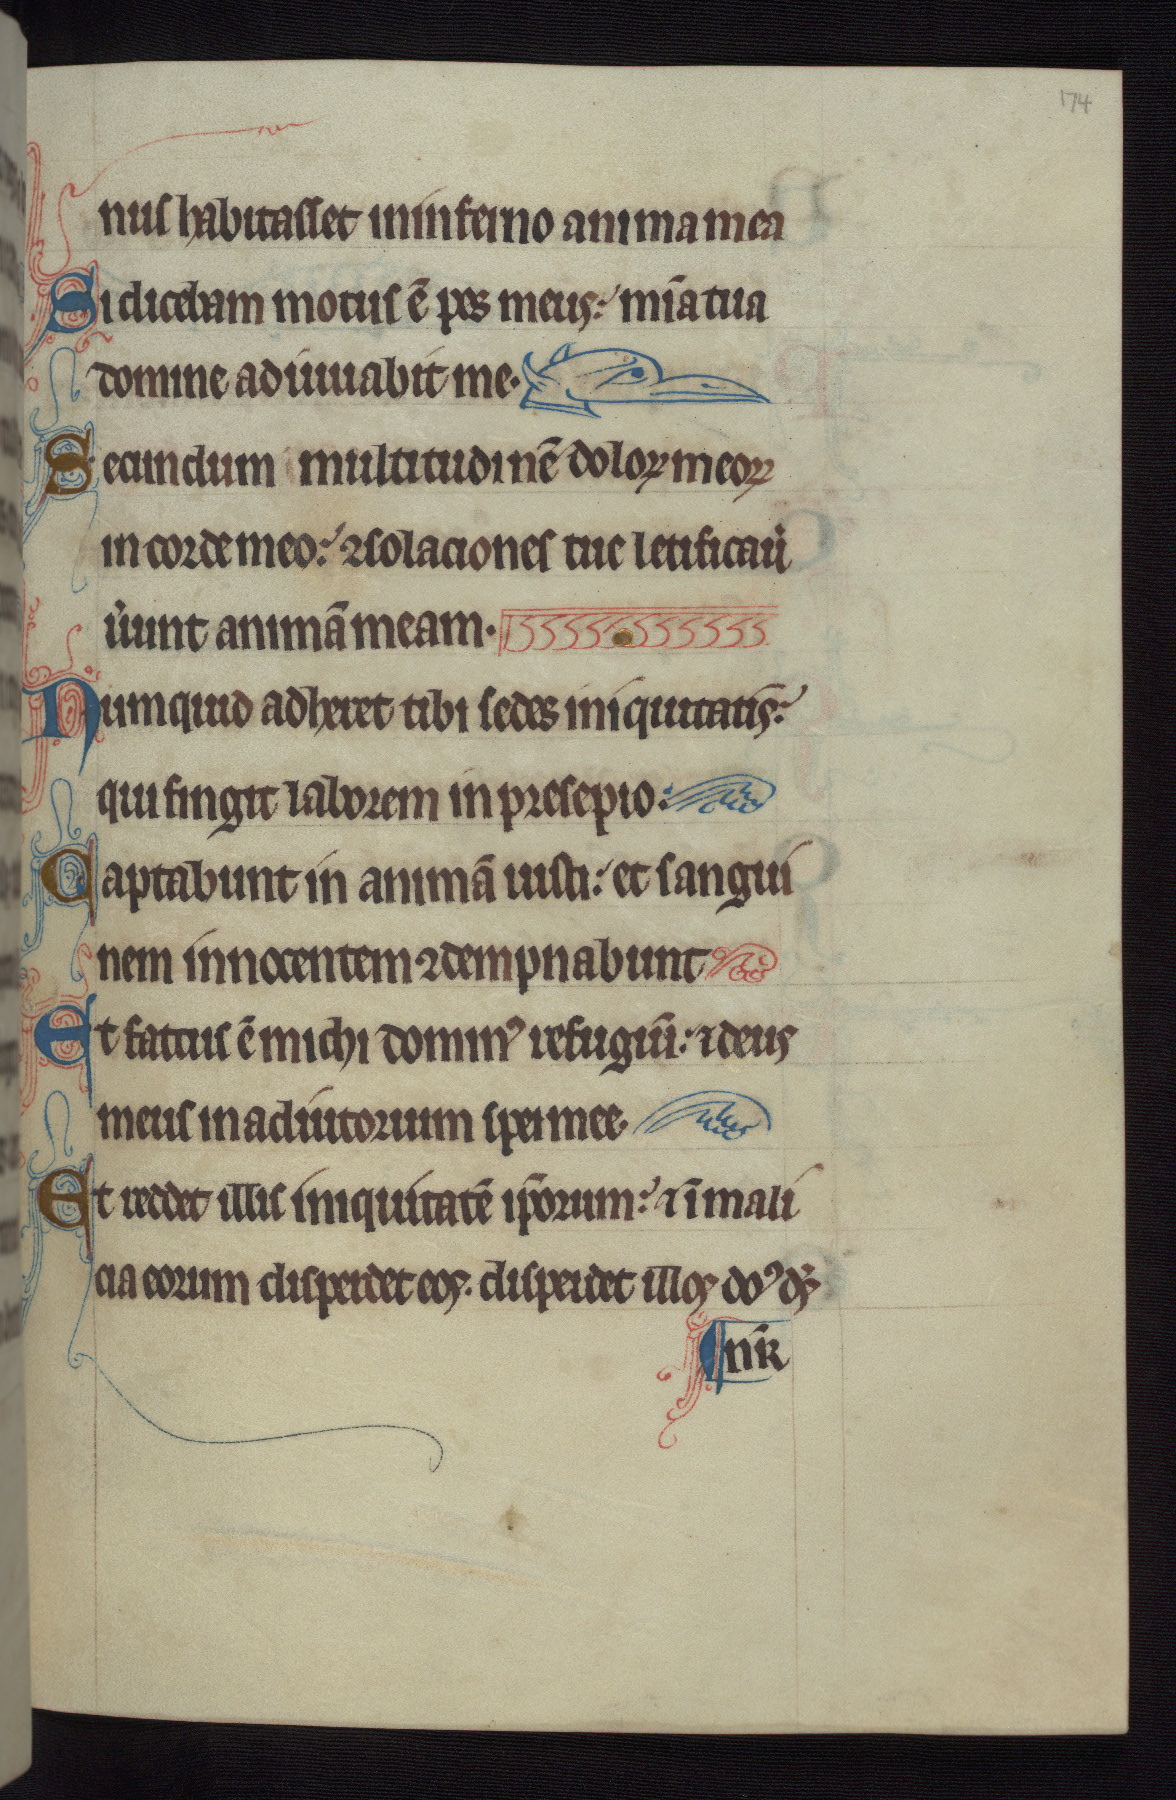 174
nus habitasset in inferno anima mea
Si dicebam motus ē pes meus: mīa tua
domine adiuuabit me.
Secundum multitudinē doloꝝ meoꝝ
in corde meo: ꝯsolaciones tue letificau̾
u̾unt animā meam.
Numquid adheret tibi sedes iniquitatis:
qui fingit laborem in presepio:
Captabunt in animā iusti: et sangui
nem innocentem ꝯdempnabunt
Et factus ē michi dominꝰ refugiū: ⁊ deus
meus in adiutorium spei mee.
Et reddet illis iniquitatē ip̄orum: ⁊ ī mali
cia eorum disperdet eos. disperdet illos doꝰ ds̄
nr̄